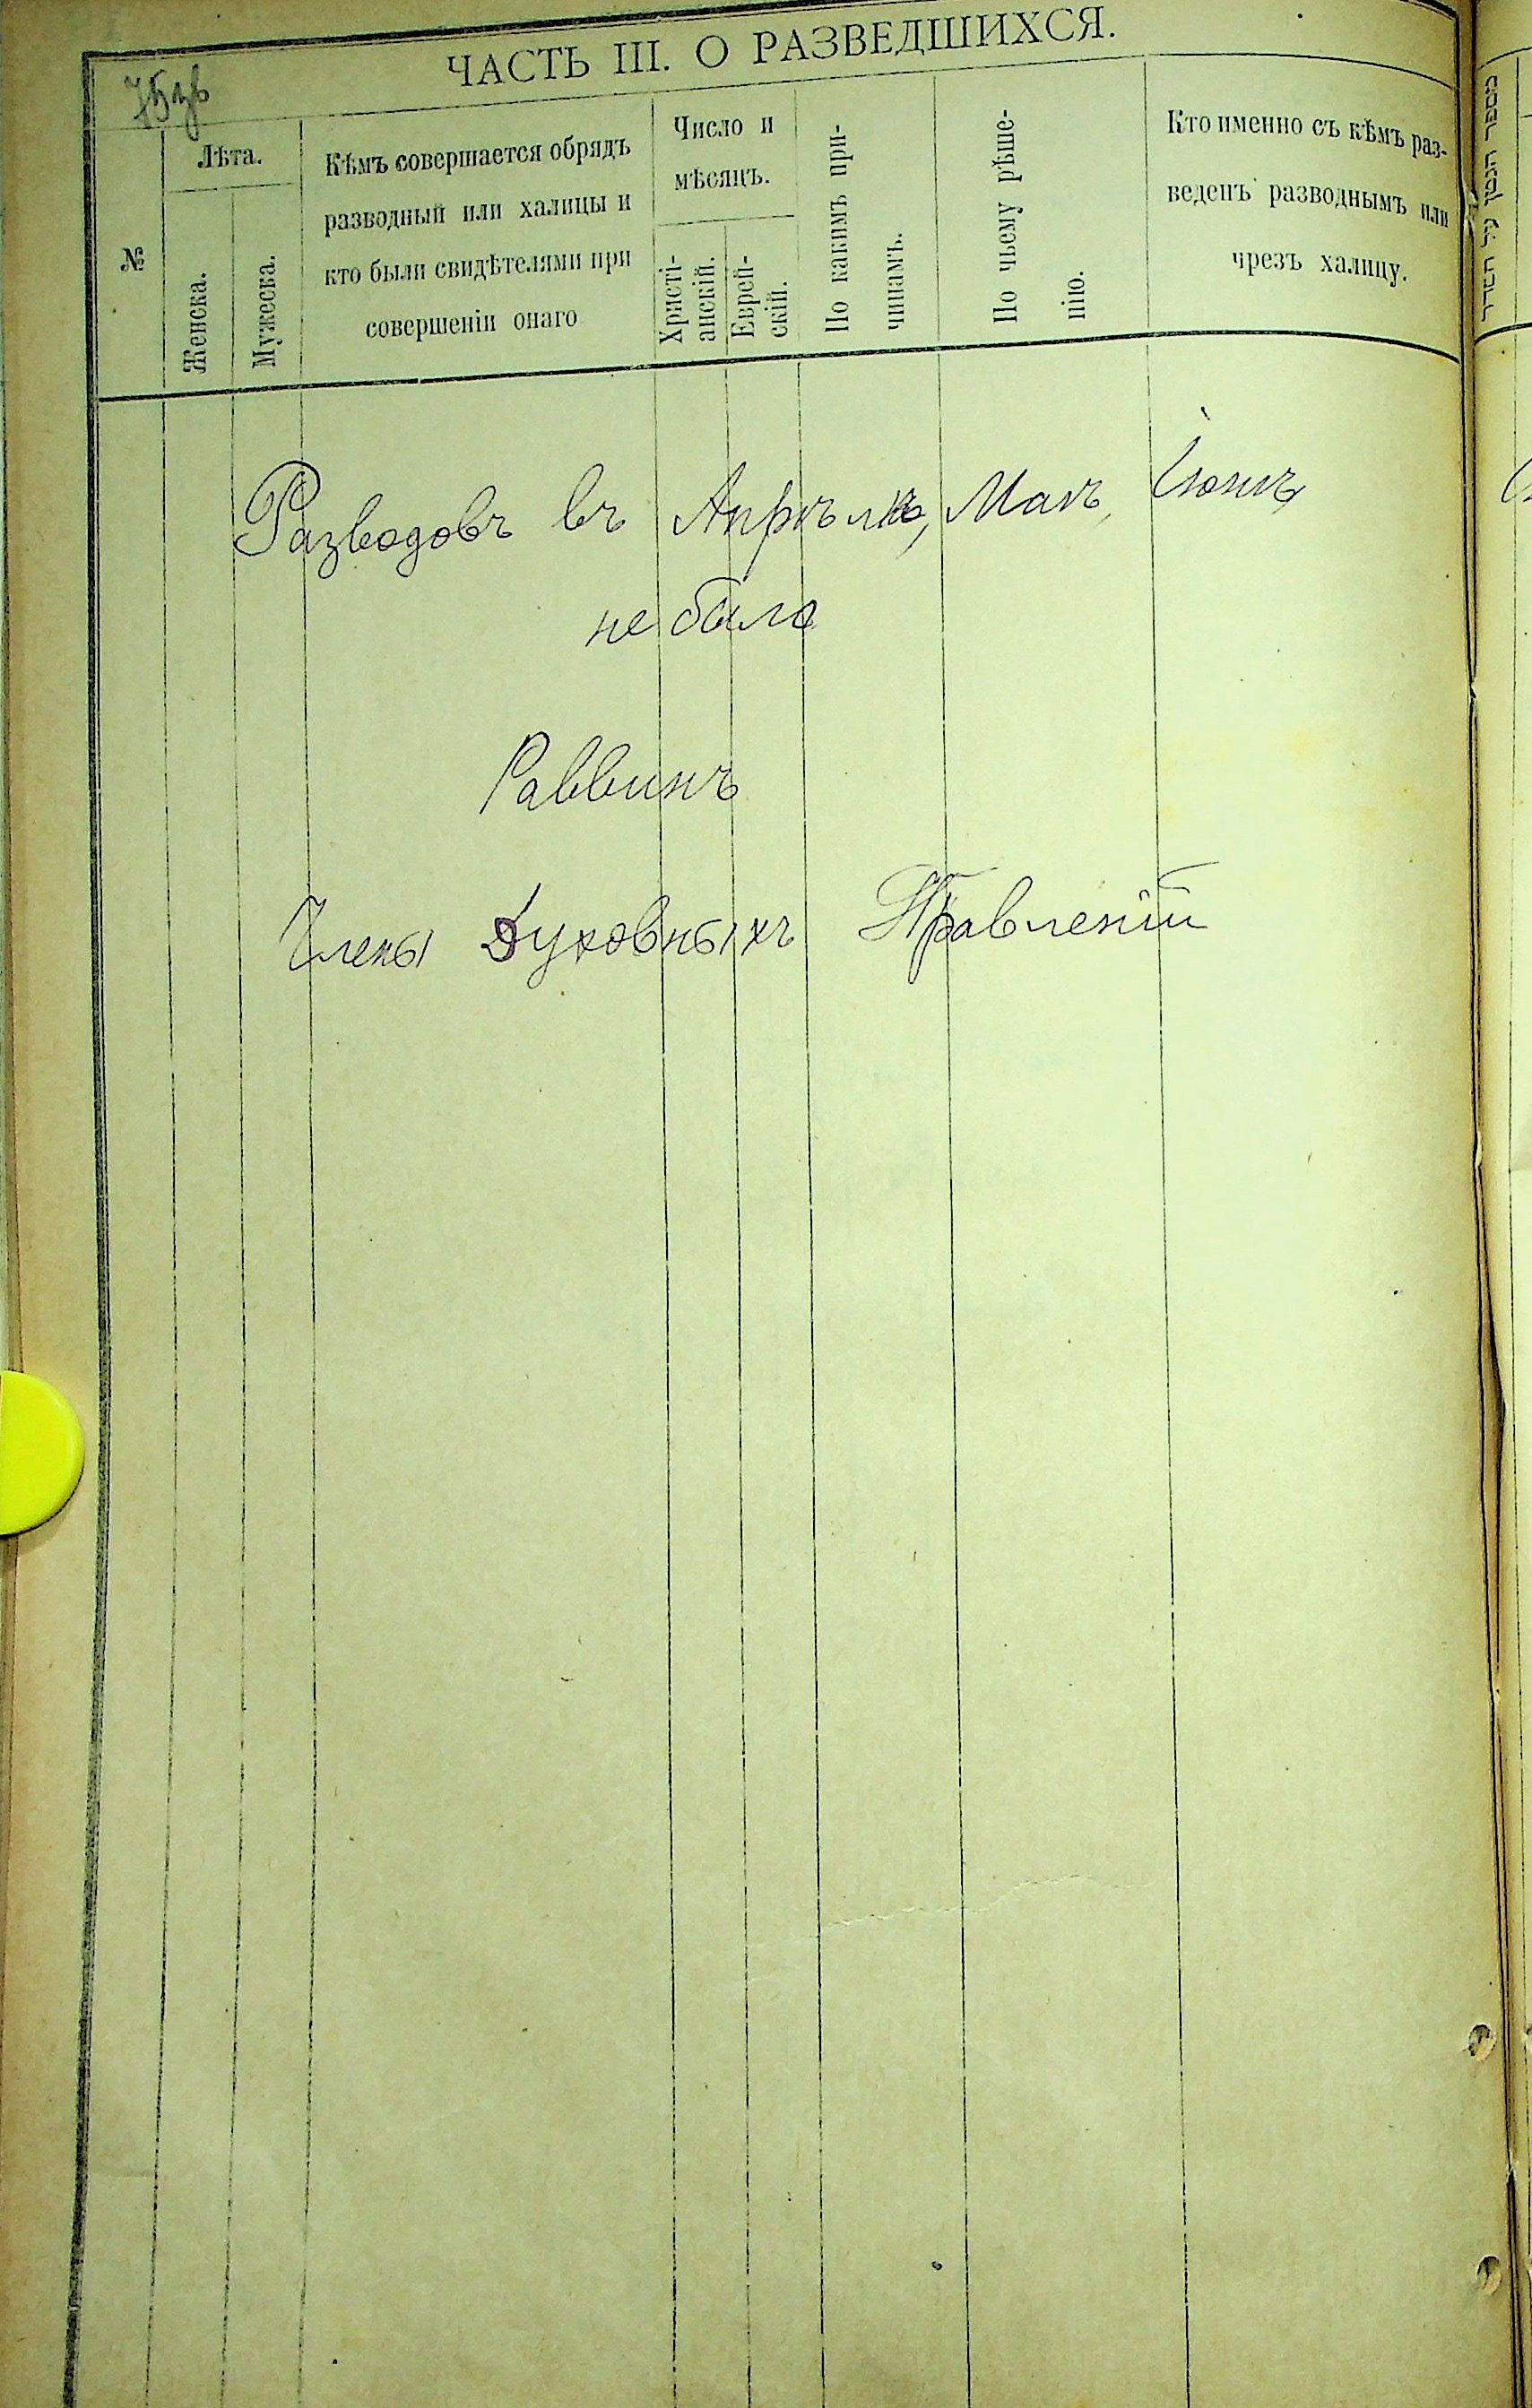 ЧАСТЬ III. О РАЗВЕДШИХСЯ.
№
Лѣта.
Женска.
Мужеска.
Кѣмъ совершается обрядъ
разводный или халицы и
кто были свидѣтелями при
совершеніи онаго
Число и
мѣсяцъ.
Христі-
анскій.
Еврей-
скій.
По какимъ при-
чинамъ.
По чьему рѣше-
нію.
Кто именно съ кѣмъ раз-
веденъ разводнымъ или
чрезъ халицу.
Разводовъ въ Апрѣлѣ, Маѣ, Іюнѣ
не было
Раввинъ
Члены Духовныхъ Правленій